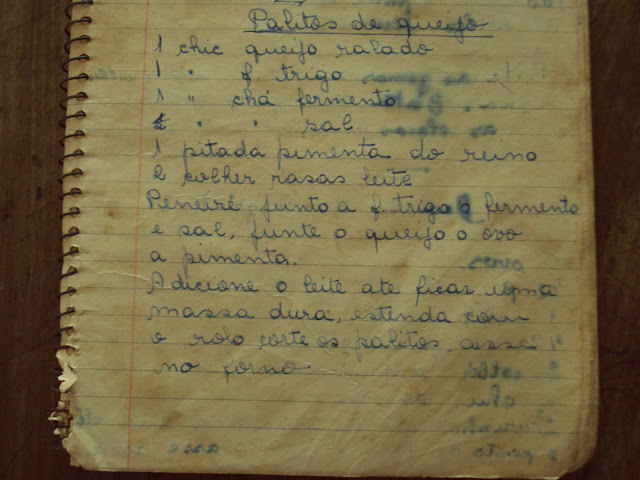 Palitos de queijo
1 chic queijo ralado
1 " f. trigo
1 " chá fermento
" " sal
1 pitada pimenta do reino
2 colher rasas leite
Peneiré junto a f. trigo o fermento
e sal, junte o queijo o ovo
a pimenta.
Adicione o leite ate ficar uma
massa dura, estenda com
o rolo corte os palitos, asse
no forno
asse